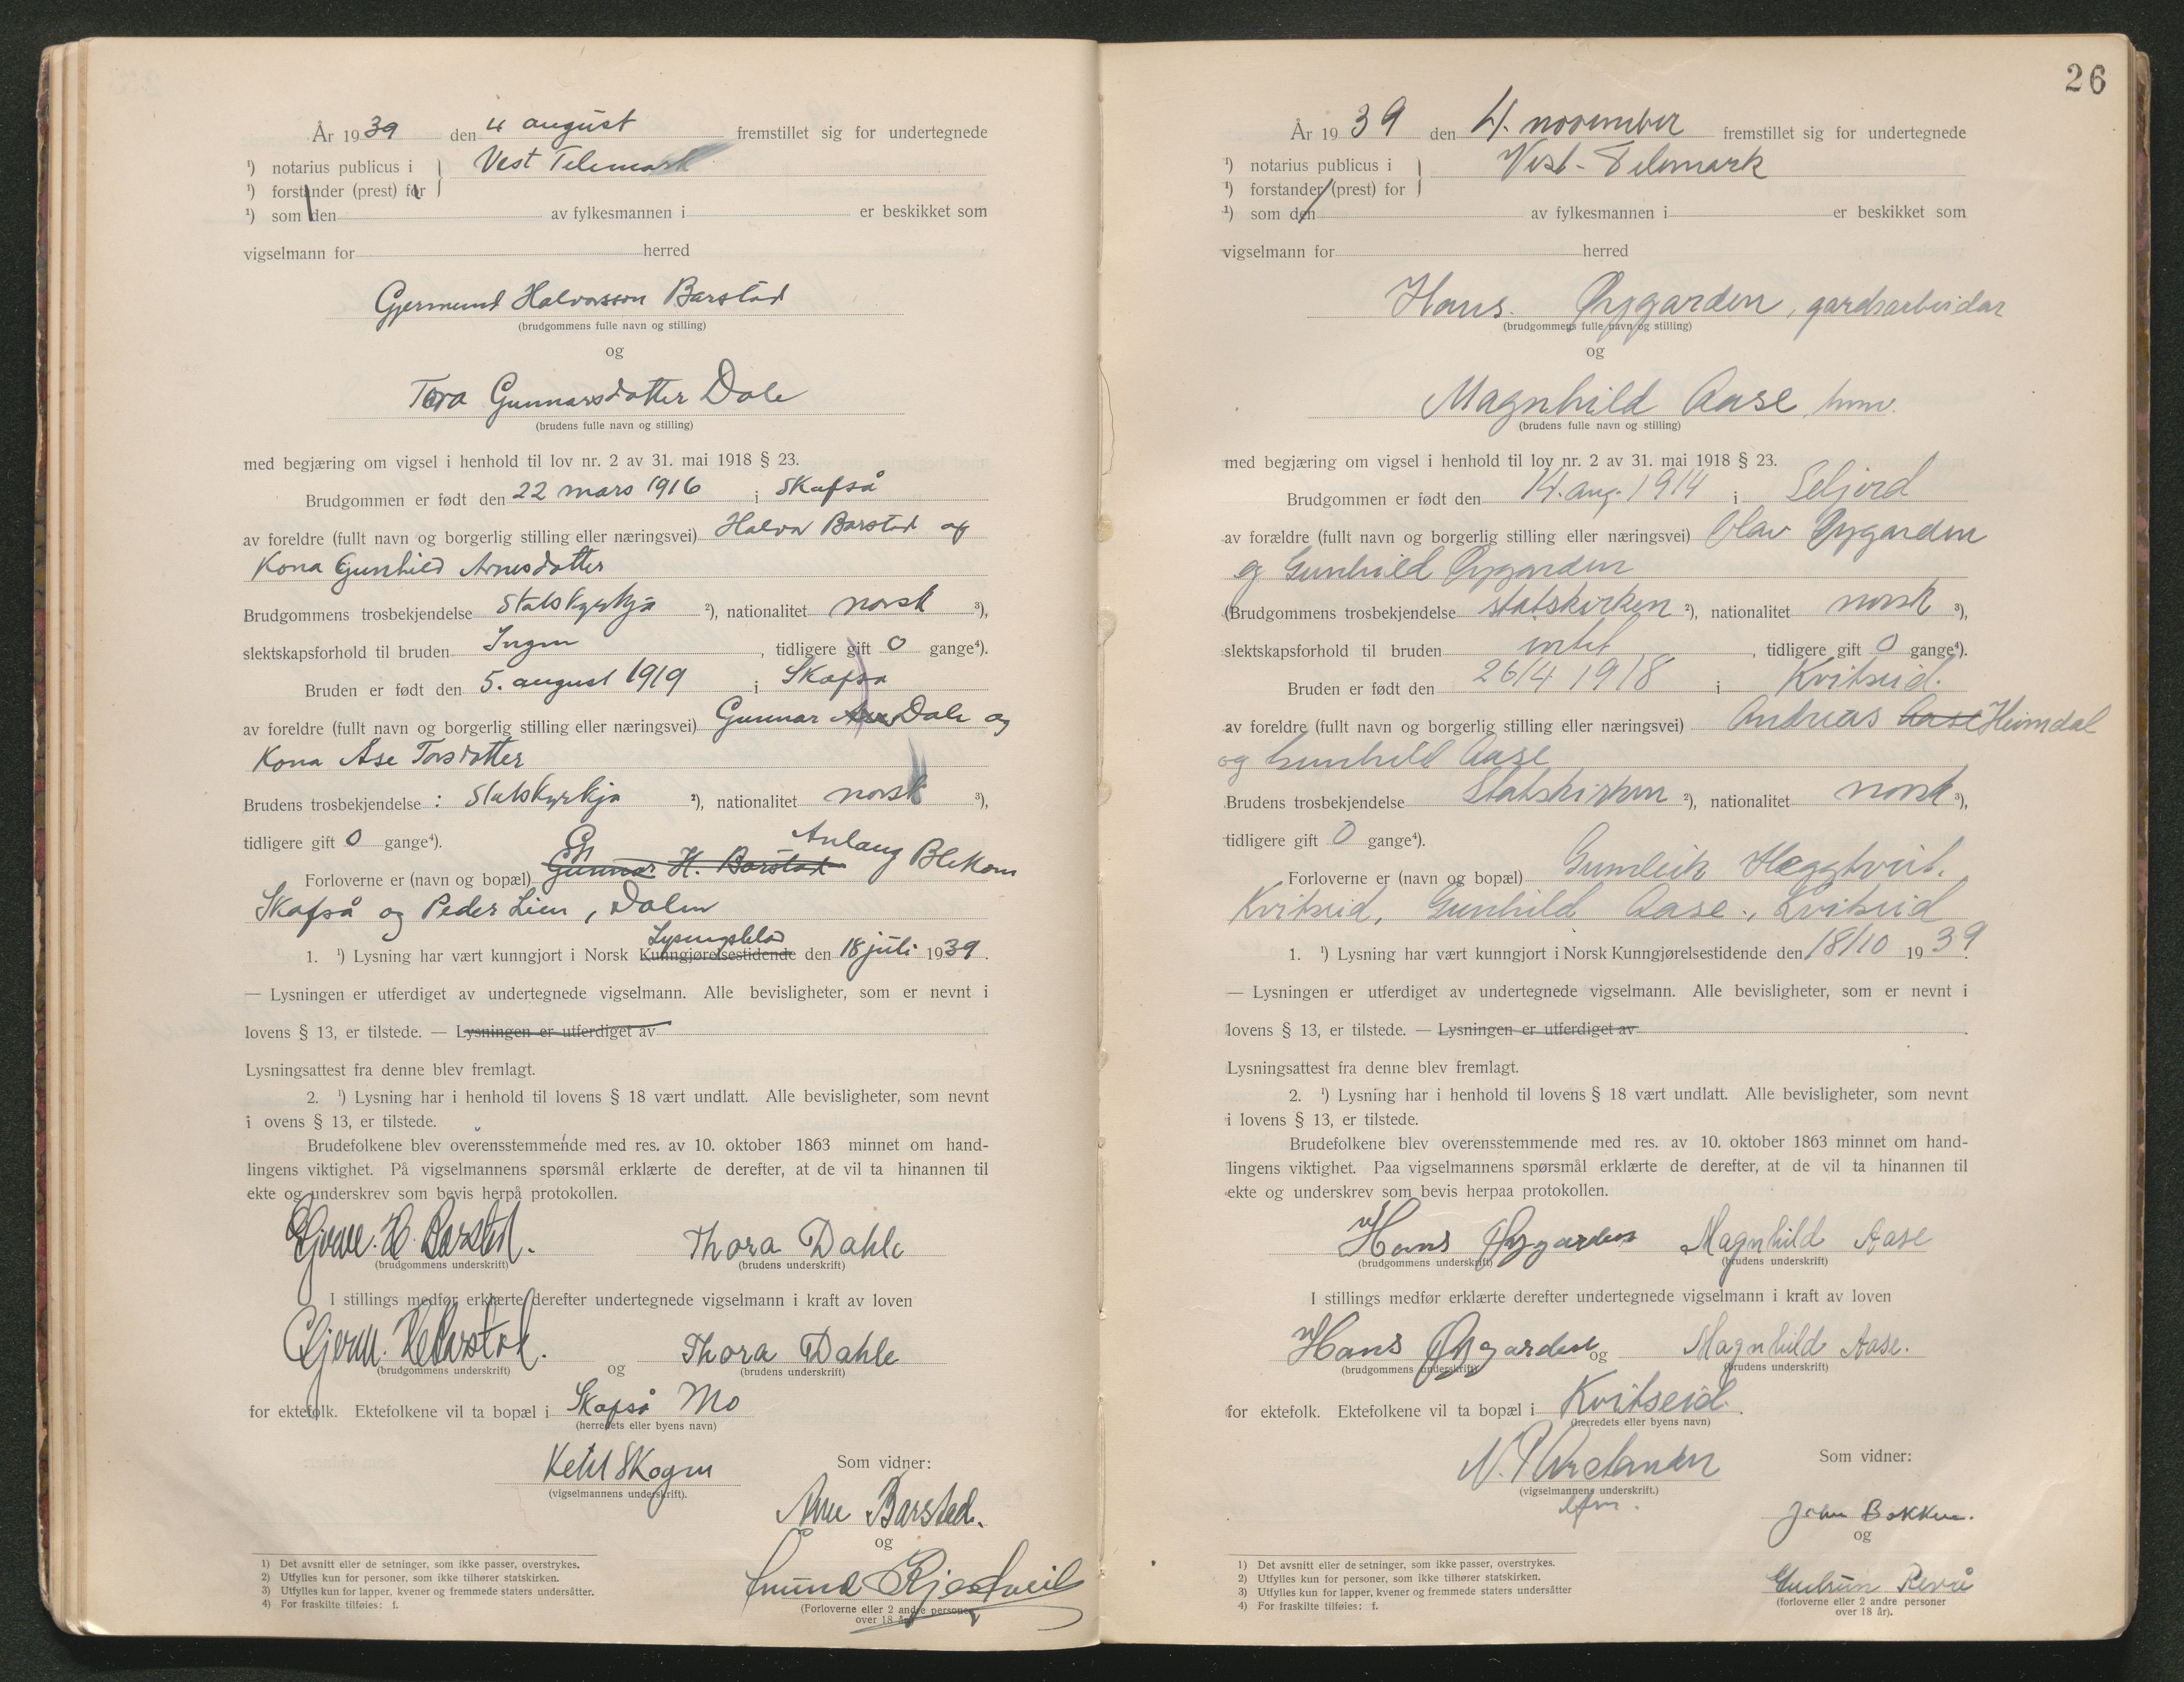 År 1939 den 4 august fremstillet sig for undertegnede
¹) notarius publicus i } Vest Telemark
¹) forstander (prest) for
¹) som den av fylkesmannen i er beskikket som
vigselmann for herred
Gjermund Halvorsson Barstad
(brudgommens fulle navn og stilling)
og
Tora Gunnarsdotter Dale
(brudens fulle navn og stilling)
med begjæring om vigsel i henhold til lov nr. 2 av 31. mai 1918 § 23.
Brudgommen er født den 22 mars 1916 i Skafså
av foreldre (fullt navn og borgerlig stilling eller næringsvei) Halvor Barstad og
Kona Gunhild Arnesdotter
Brudgommens trosbekjendelse Statskyrkja ²), nationalitet norsk ³),
slektskapsforhold til bruden Ingen, tidligere gift 0 gange⁴).
Bruden er født den 5. august 1919 i Skafså
av foreldre (fullt navn og borgerlig stilling eller næringsvei) Gunnar Dale og
Kona Åse Torsdotter
Brudens trosbekjendelse : Statskyrkja ²), nationalitet norsk ³),
tidligere gift 0 gange⁴).
Forloverne er (navn og bopæl) Gunnar H. Barstad Aulaug Blekom
Skafså og Peder Lien, Dalen
Lysingsblad
1. ¹) Lysning har vært kunngjort i Norsk Kunngjørelsestidende den 18 juli 1939.
— Lysningen er utferdiget av undertegnede vigselmann. Alle bevisligheter, som er nevnt i
lovens § 13, er tilstede. — Lysningen er utferdiget av
Lysningsattest fra denne blev fremlagt.
2. ¹) Lysning har i henhold til lovens § 18 vært undlatt. Alle bevisligheter, som nevnt
i ovens § 13, er tilstede.
Brudefolkene blev overensstemmende med res. av 10. oktober 1863 minnet om hand-
lingens viktighet. På vigselmannens spørsmål erklærte de derefter, at de vil ta hinannen til
ekte og underskrev som bevis herpå protokollen.
Gjerm. H. Barstad. Thora Dahle
(brudgommens underskrift) (brudens underskrift)
I stillings medfør erklærte derefter undertegnede vigselmann i kraft av loven
Gjerm. H. Barstad. og Thora Dahle
(brudgommens underskrift) (brudens underskrift)
for ektefolk. Ektefolkene vil ta bopæl i Skafså Mo
(herredets eller byens navn)
Ketil Skogen Som vidner:
(vigselmannens underskrift).
Arne Barstad.
og
(Forloverne eller 2 andre personer
over 18 år)
1) Det avsnitt eller de setninger, som ikke passer, overstrykes.
2) Utfylles kun for personer, som ikke tilhører statskirken.
3) Utfylles kun for lapper, kvener og fremmede staters undersåtter.
4) For fraskilte tilføies: f.
26
År 1939 den 4. november fremstillet sig for undertegnede
¹) notarius publicus i } Vest-Telemark
¹) forstander (prest) for
¹) som den av fylkesmannen i er beskikket som
vigselmann for herred
Hans Øygarden, gardsarbeidar
(brudgommens fulle navn og stilling)
og
Magnhild Aase,
(brudens fulle navn og stilling)
med begjæring om vigsel i henhold til lov nr. 2 av 31. mai 1918 § 23.
Brudgommen er født den 14. aug. 1914 i Seljord
av forældre (fullt navn og borgerlig stilling eller næringsvei) Olav Øygarden
og Gunhild Øygarden
(Brudgommens trosbekjendelse statskirken ²), nationalitet norsk ³),
slektskapsforhold til bruden intet, tidligere gift 0 gange⁴).
Bruden er født den 26/4 1918 i Kvitseid.
av foreldre (fullt navn og borgerlig stilling eller næringsvei) Andreas Aase Heimdal
og Gunhild Aase
Brudens trosbekjendelse Statskirken ²), nationalitet norsk ³),
tidligere gift 0 gange⁴).
Forloverne er (navn og bopæl) Gunleik Hæggtveit,
Kvitseid, Gunhild Aase, Kvitseid
1. ¹) Lysning har vært kunngjort i Norsk Kunngjørelsestidende den 18/10 1939.
— Lysningen er utferdiget av undertegnede vigselmann. Alle bevisligheter, som er nevnt i
lovens § 13, er tilstede. — Lysningen er utferdiget av
Lysningsattest fra denne blev fremlagt.
2. ¹) Lysning har i henhold til lovens § 18 vært undlatt. Alle bevisligheter, som nevnt
i lovens § 13, er tilstede.
Brudefolkene blev overensstemmende med res. av 10. oktober 1863 minnet om hand-
lingens viktighet. Paa vigselmannens spørsmål erklærte de derefter, at de vil ta hinannen til
ekte og underskrev som bevis herpaa protokollen.
Hans Øygarden Magnhild Aase
(brudgommens underskrift) (brudens underskrift)
I stillings medfør erklærte derefter undertegnede vigselmann i kraft av loven
Hans Øygarden og Magnhild Aase.
(brudgommens underskrift) (brudens underskrift)
for ektefolk. Ektefolkene vil ta bopæl i Kvitseid.
(herredets eller byens navn)
Som vidner:
(vigselmannens underskrift.)
John Bakken.
og
Gudrun Revå
(forloverne eller 2 andre personer
over 18 år).
1) Det avsnitt eller de setninger, som ikke passer, overstrykes.
2) Utfylles kun for personer, som ikke tilhører statskirken.
3) Utfylles kun for lapper, kvener og fremmede staters undersåtter
4) For fraskilte tilføies: f.